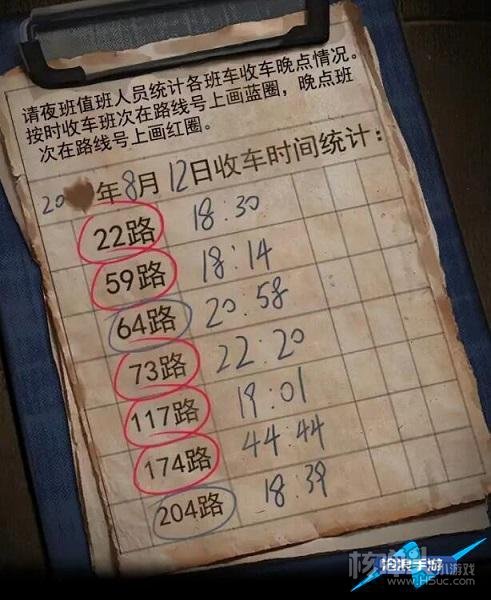 请夜班值班人员统计各班车收车晚点情况。
按时收车班次在路线号上画蓝圈，晚点班
次在路线号上画红圈。
20 年8月12日收车时间统计：
22路 18:30
59路 18:14
64路 20:58
73路 22:20
117路 19:01
174路 44:44
204路 18:39
沧浪手游
www.HSuc.com